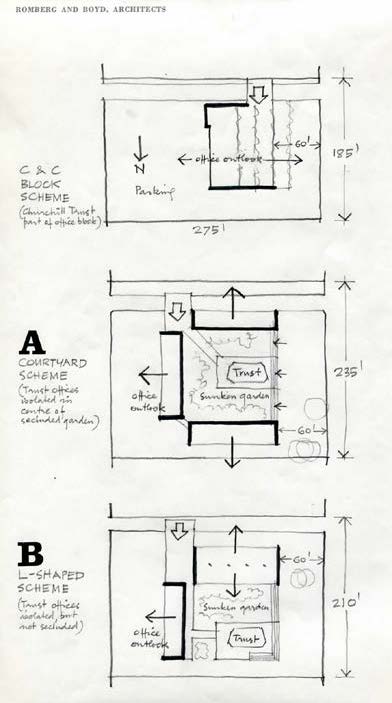 ROMBERG AND BOYD, ARCHITECTS
C & C
BLOCK
SCHEME
(Churchill Trust
part of office block)
N
Parking
office outlook
60'
185'
275'
A
COURTYARD
SCHEME
(Trust offices
isolated in
centre of
secluded garden)
office
outlook
Trust
Sunken garden
60'
235'
B
L-SHAPED
SCHEME
(Trust offices
isolated, but
not secluded)
office
outlook
Sunken garden
Trust
60'
210'